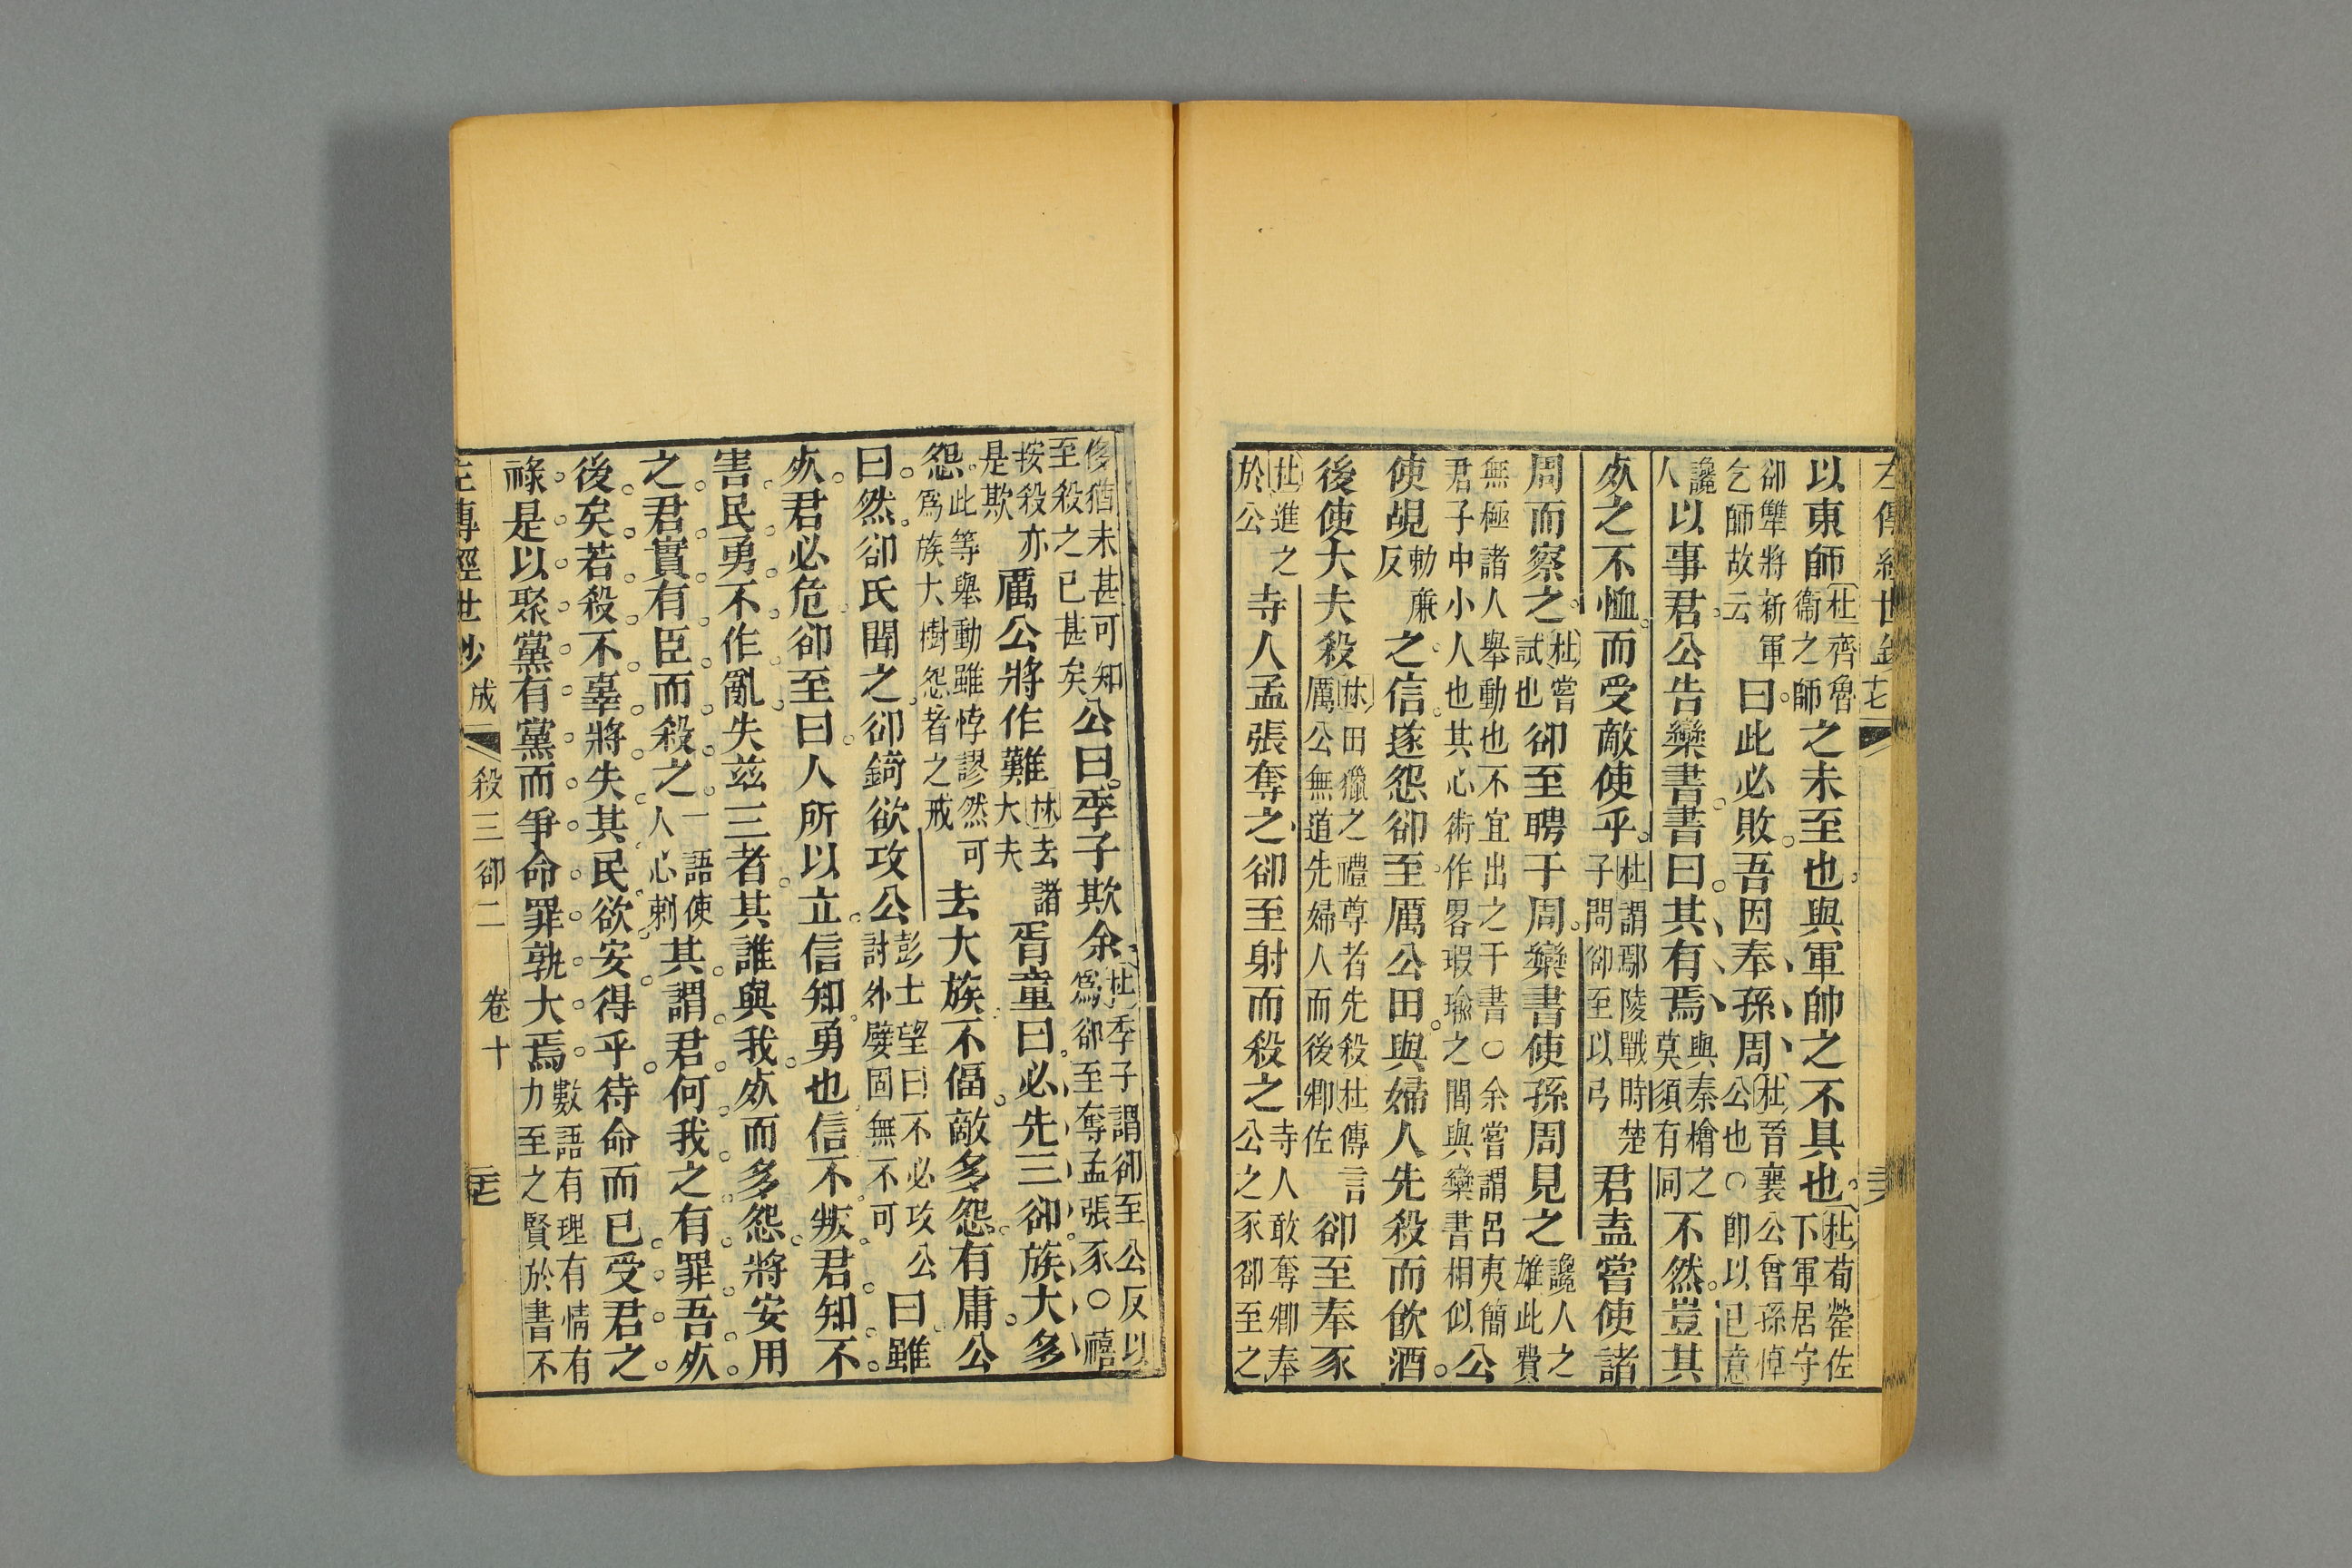 以東師杜齊魯衛之師之未至也與軍帥之不具也杜荀罃佐下軍居守
郤犨將新軍乞師故云曰此必敗吾因奉孫周杜晉襄公曾孫悼公也○卽以已意
讒人以事君公告欒書書曰其有焉與秦檜之莫須有同不然豈其
死之不恤而受敵使乎杜謂鄢陵戰時楚子問郤至以弓君盍嘗使諸
周而察之杜嘗試也郤至聘于周欒書使孫周見之讒人之雄此費
無極諸人舉動也不宜出之于書○余嘗謂呂夷簡君子中小人也其心術作畧瑕瑜之間與欒書相似公
使覘勑亷反之信遂怨郤至厲公田與婦人先殺而飲酒
後使大夫殺林田獵之禮尊者先殺杜傳言厲公無道先婦人而後卿佐郤至奉豕
杜進之於公寺人孟張奪之郤至射而殺之寺人敢奪卿奉公之豕郤至之
侈猶未甚可知至殺之已甚矣公曰季子欺余杜季子謂郤至公反以爲郤至奪孟張豕○禧
按殺亦是欺厲公將作難林去諸大夫胥童曰必先三郤族大多
怨此等舉動雖悖謬然可爲族大樹怨者之戒去大族不偪敵多怨有庸公
曰然郤氏聞之郤錡欲攻公彭士望曰不必攻公討外嬖固無不可曰雖
死君必危郤至曰人所以立信知勇也信不叛君知不
害民勇不作亂失茲三者其誰與我死而多怨將安用
之君實有臣而殺之一語使人心刺其謂君何我之有罪吾死
後矣若殺不辜將失其民欲安得乎待命而已受君之
祿是以聚黨有黨而爭命罪孰大焉數語有理有情有力至之賢於書不
左傳經世鈔 成 殺三郤二 卷十